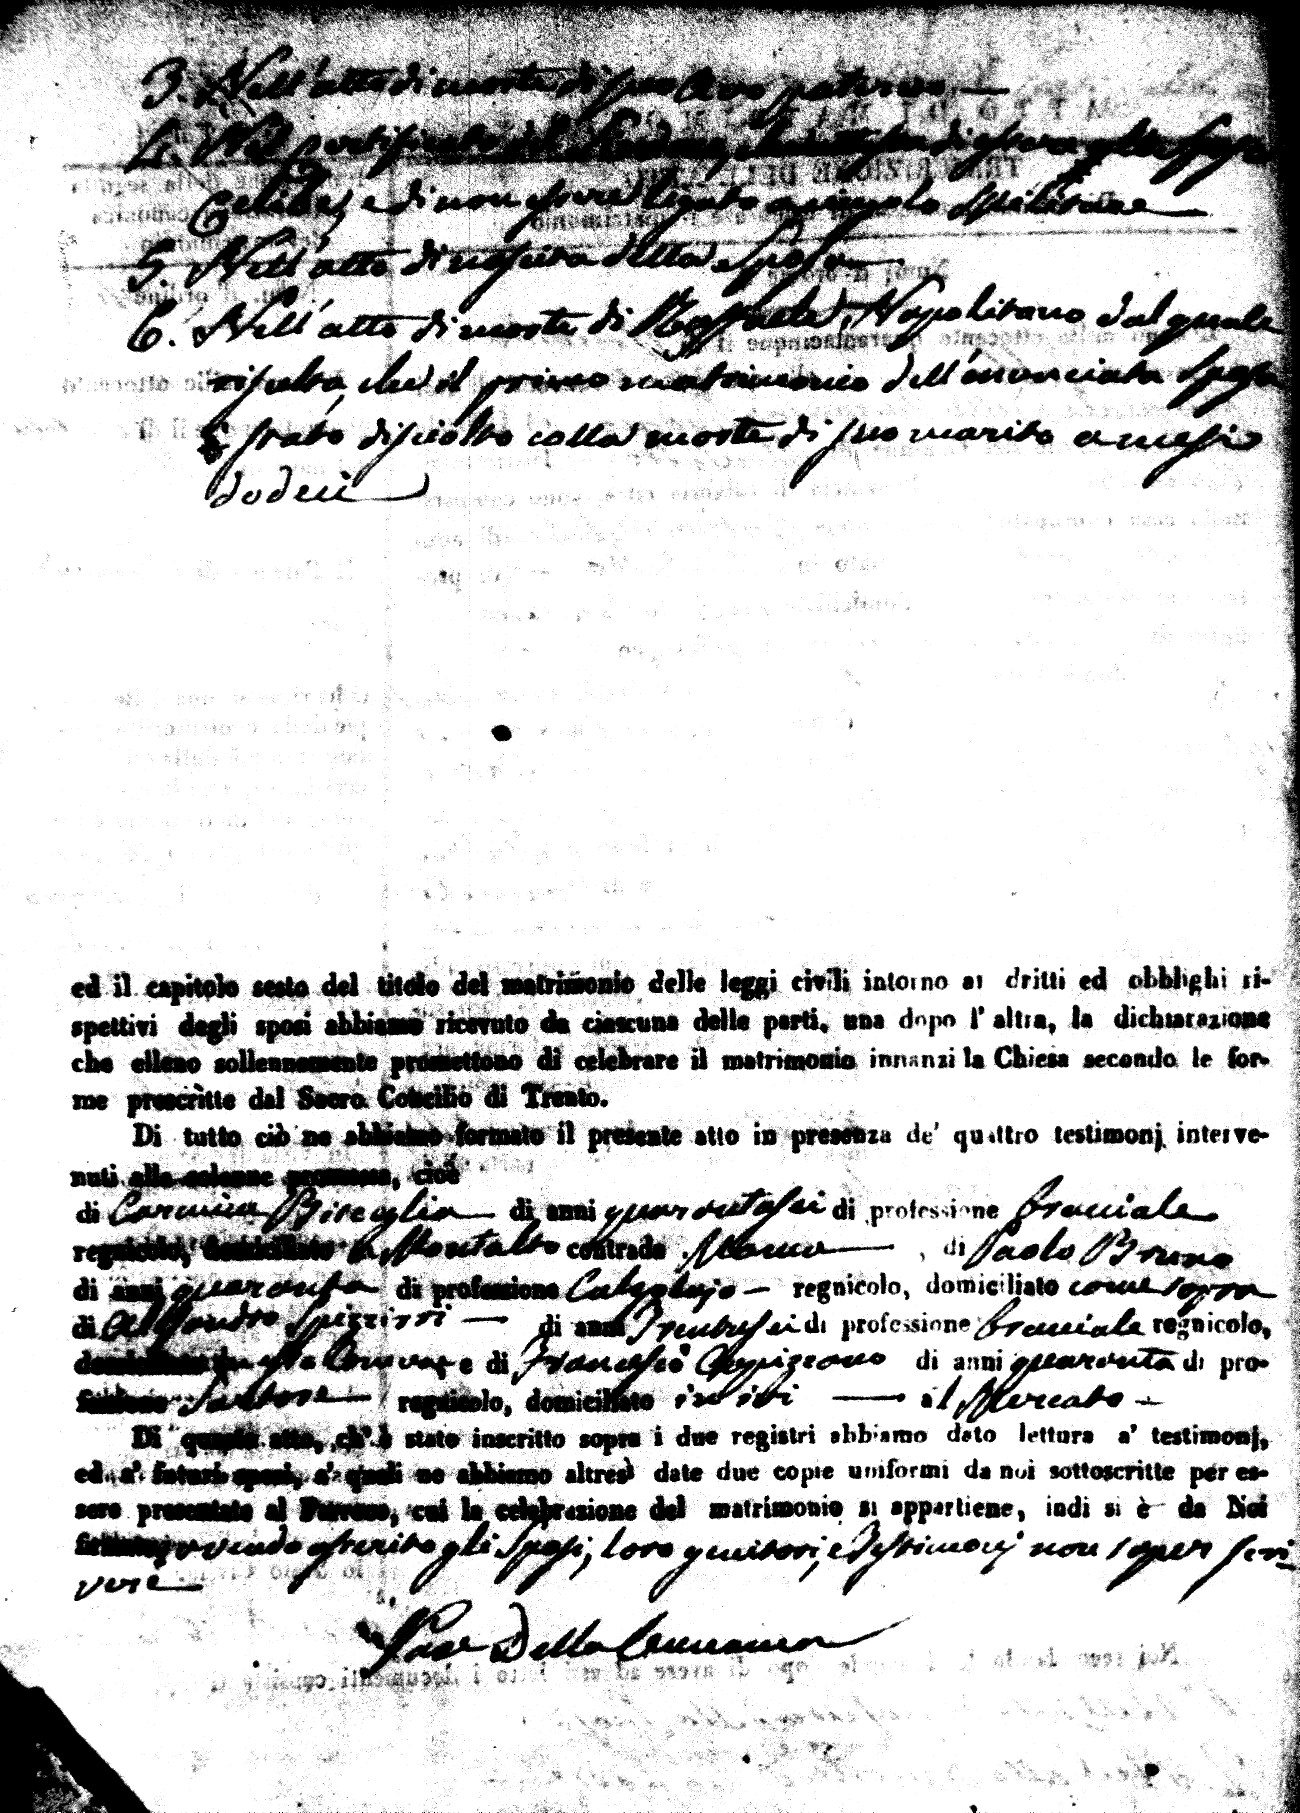 3. Nell'atto di morte di suo Avo paterno —
4. Nel Certificato del Sindaco, di essere gli Sposi
Celibe, e di non essere legato a vincolo
5. Nell'atto di nascita della Sposa —
6. Nell'atto di morte di Raffaele Napolitano dal quale
risulta, che il primo matrimonio dell'anunciata Sposa
è stato disciolto colla morte di suo marito a mesi
dodeci
ed il capitolo sesto del titolo del matrimonio delle leggi civili intorno ai dritti ed obblighi ri-
spettivi degli sposi abbiamo ricevuto da ciascuna delle parti, una dopo l'altra, la dichiarazione
che elleno sollennemente promettono di celebrare il matrimonio innanzi la Chiesa secondo le for-
me prescritte dal Sacro Concilio di Trento.
Di tutto ciò ne abbiamo formato il presente atto in presenza de' quattro testimonj interve-
nuti alla solenne promessa, cioè
di Carmine Bisceglia — di anni quarantasei di professione bracciale
regnicolo, domiciliato a Montalto contrada — , di Paolo Bruno
di anni quaranta di professione Calzolajo — regnicolo, domiciliato come sopra
di Spizzirri — di anni trentasei di professione bracciale regnicolo,
domiciliato e di Francesco di anni quaranta di pro-
fessione Sartore — regnicolo, domiciliato ivi — al Mercato —
Di questo atto, ch'è stato inscritto sopra i due registri abbiamo dato lettura a' testimonj,
ed a' futuri sposi, a' quali ne abbiamo altresì date due copie uniformi da noi sottoscritte per es-
sere presentate al Parroco, cui la celebrazione del matrimonio si appartiene, indi si è da Noi
firmato, avendo asserito gli Sposi, loro genitori, e Testimonj non saper scri
vere —
Della